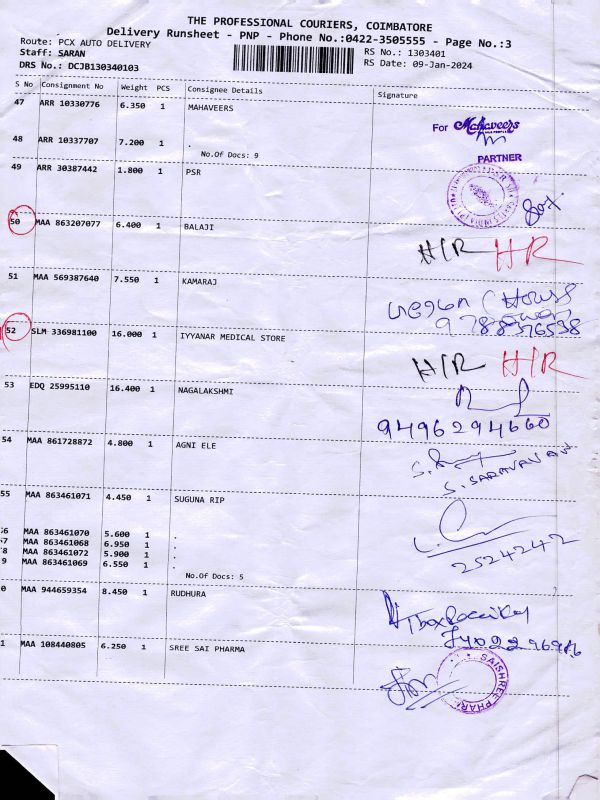 THE PROFESSIONAL COURIERS, COIMBATORE
Delivery Runsheet - PNP - Phone No.:0422-3505555 - Page No.:3
Route: PCX AUTO DELIVERY
RS No.: 1303401
Staff: SARAN
RS Date: 09-Jan-2024
DRS No.: DCJB130340103
S No Consignment No Weight PCS Consignee Details Signature
47 ARR 10330776 6.350 1 MAHAVEERS
For Mahaveers
48 ARR 10337707 7.200 1 .
No.Of Docs: 9
PARTNER
49 ARR 30387442 1.800 1 PSR
50 MAA 863207077 6.400 1 BALAJI
H/R HR
51 MAA 569387640 7.550 1 KAMARAJ
(House
9788376538
52 SLM 336981100 16.000 1 IYYANAR MEDICAL STORE
H/R H/R
53 EDQ 25995110 16.400 1 NAGALAKSHMI
9496294660
54 MAA 861728872 4.800 1 AGNI ELE
S. SARAVANAN
55 MAA 863461071 4.450 1 SUGUNA RIP
56 MAA 863461070 5.600 1 .
57 MAA 863461068 6.950 1 .
8 MAA 863461072 5.900 1 .
9 MAA 863461069 6.550 1 .
2524242
No.Of Docs: 5
0 MAA 944659354 8.450 1 RUDHURA
1 MAA 108440805 6.250 1 SREE SAI PHARMA
SAISHREE PHAR